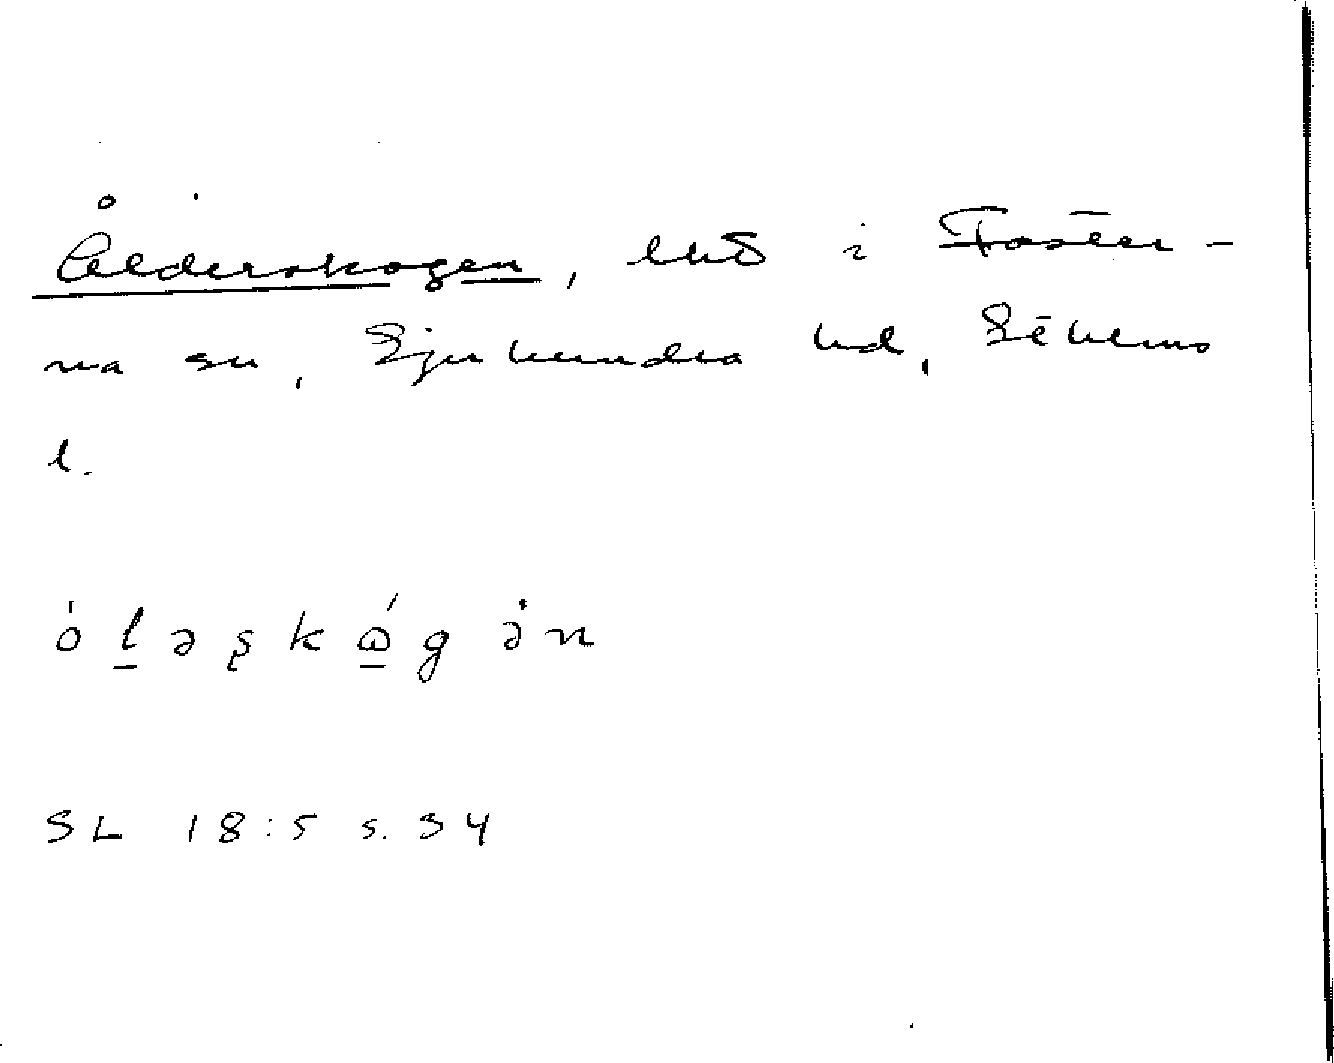 Ålderskogen, lhd i Faster-
na sn, Sjuhundra hd, Sthlms
l.
ó l ə s k ɷ́ g ə n
SL 18:5 s. 34